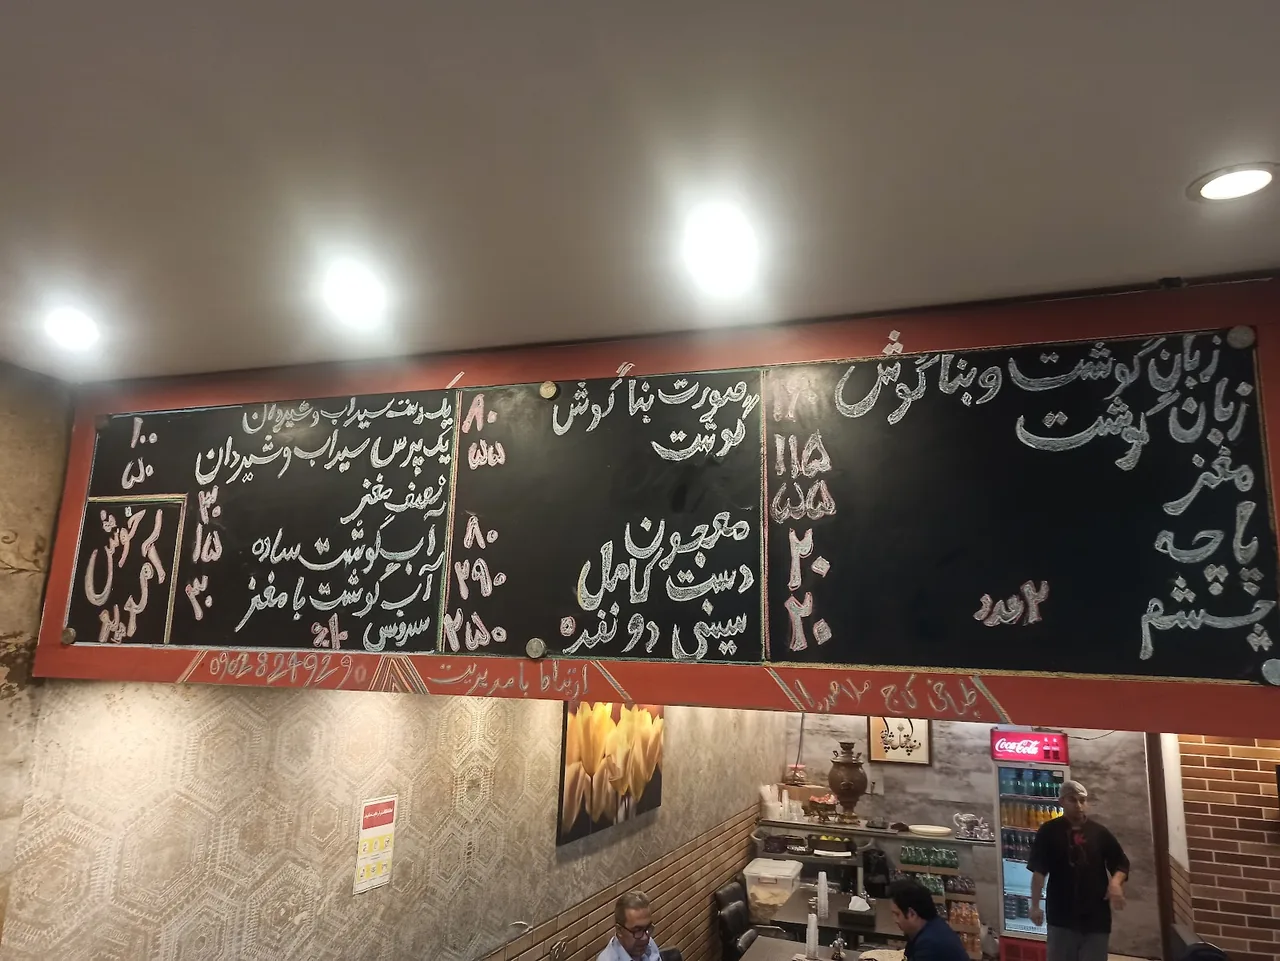 زبانِ گوشت و بناگوش
زبانِ گوشت ۱۱۵
مغز ۵۵
پاچه ۲۰
چشم ۲عدد ۲۰
صورت بناگوش ۸۰
گوشت ۵۵
معجون ۸۰
دست کامل ۲۹۰
سینی دو نفره ۲۵۰
یکدست سیراب و شیردان ۱۰۰
یک پرس سیراب وشیردان ۵۰
نصف مغز ۳۰
آب گوشت ساده ۱۵
آب گوشت با مغز ۳۰
سرویس
خوش
آمدید
طباخی کاج ملاصدرا
با مدیریت
09028249290
Coca-Cola